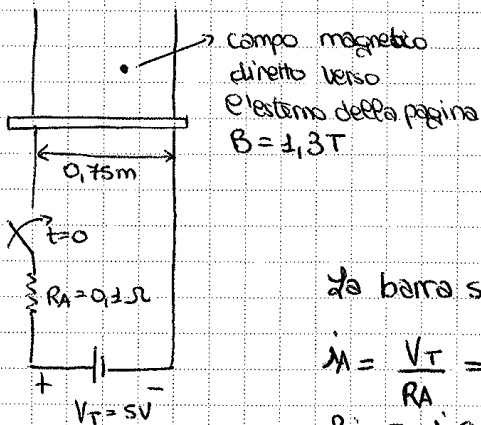 campo magnetico
diretto verso
l'esterno della pagina
B = 1,3T
0,75m
t=0
RA = 0,1Ω
+ -
VT = 5V
La barra s
iA = VT / RA =